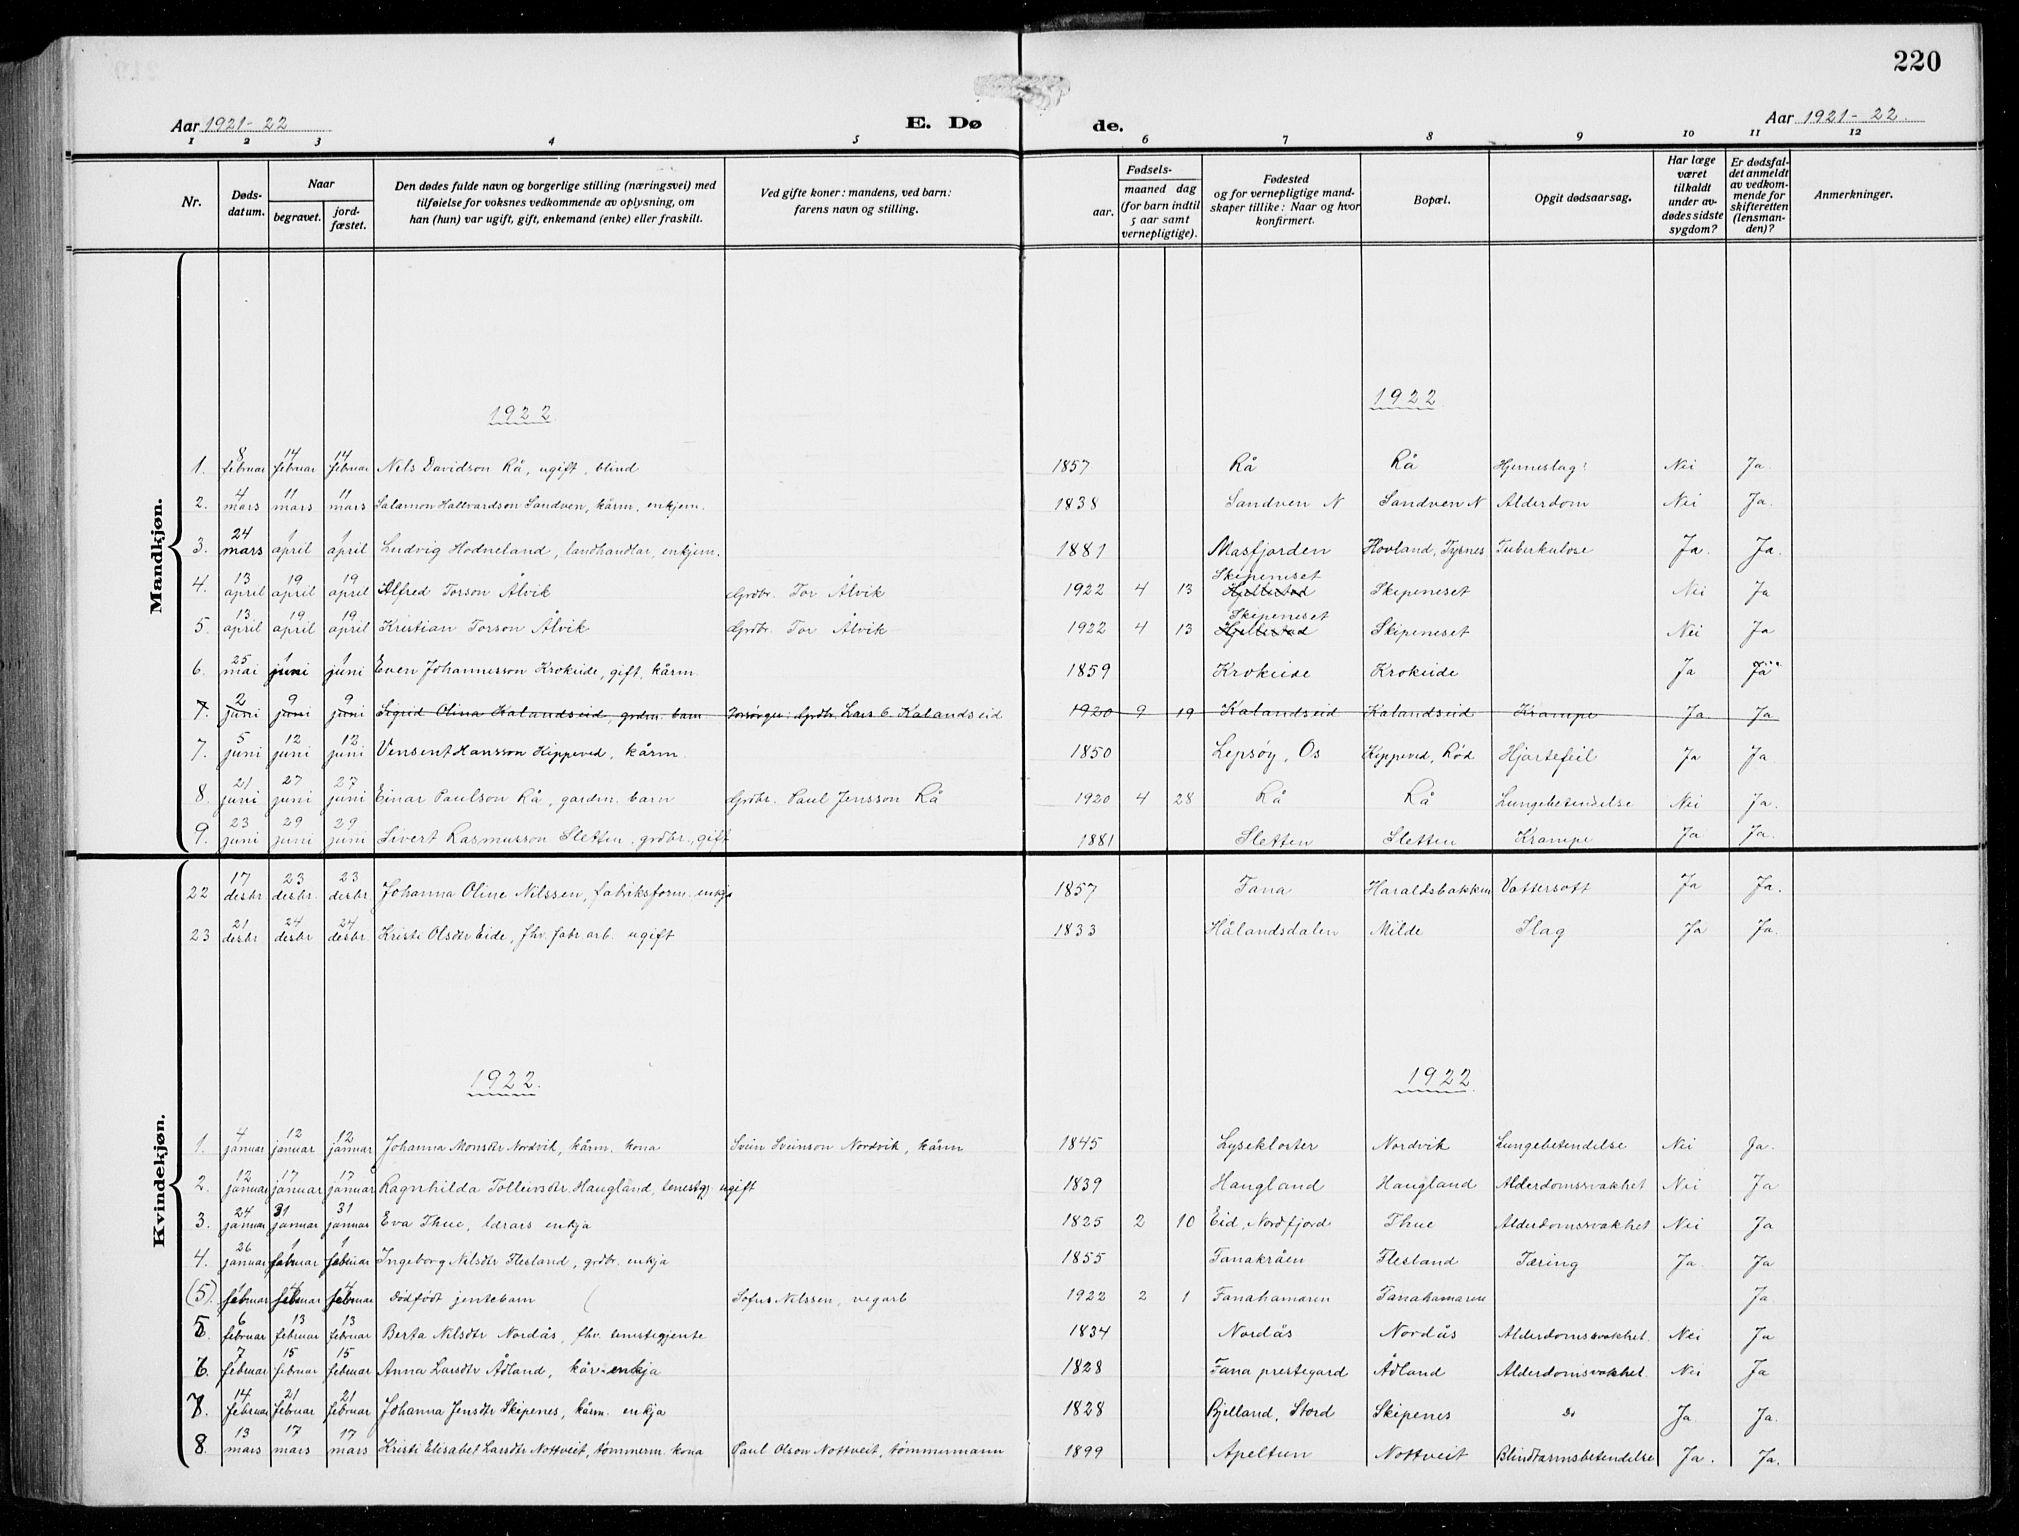 220
Aar 1921-22
E. Dø
de.
Aar 1921-22.
1 2 3 4 5 6 7 8 9 10 11 12
Nr.
Døds-
datum.
Naar
begravet.
jord-
fæstet.
Den dødes fulde navn og borgerlige stilling (næringsvei) med
tilføielse for voksnes vedkommende av oplysning, om
han (hun) var ugift, gift, enkemand (enke) eller fraskilt.
Ved gifte koner: mandens, ved barn:
farens navn og stilling.
Fødsels-
aar.
maaned dag
(for barn indtil
5 aar samt
vernepligtige).
Fødested
og for vernepligtige mand-
skaper tillike: Naar og hvor
konfirmert.
Bopæl.
Opgit dødsaarsag.
Har læge
været
tilkaldt
under av-
dødes sidste
sygdom?
Er dødsfal-
det anmeldt
av vedkom-
mende for
skifteretten
(lensman-
den)?
Anmerkninger.
Mandkjøn.
1922. 1922.
1. 8 februar 14 februar 14 februar Nils Davidson Rå, ugift, blind 1857 Rå Rå Hjerneslag: Nei Ja.
2. 4 mars 11 mars 11 mars Salamon Hallvardson Sandven, kårm. enkjem. 1838 Sandven N Sandven N Alderdom Nei Ja.
3. 24 mars 1 april 1 april Ludvig Hodneland, landhandlar, enkjem. 1881 Masfjorden Hovland, Tysnes Tuberkulose Ja. Ja.
4. 13 april 19 april 19 april Alfred Torson Ålvik Grdbr. Tor Ålvik 1922 4 13 Skipeneset Hjellestad Skipeneset Nei Ja
5. 13 april 19 april 19 april Kristian Torson Ålvik Grdbr. Tor Ålvik 1922 4 13 Skipeneset Hjellestad Skipeneset Nei Ja
6. 25 mai 1 juni 1 juni Even Johannesson Krokeide, gift, kårm. 1859 Krokeide Krokeide Ja Ja
7. 2 juni 9 juni 9 juni Sigrid Olina Kalandseid, grdm. barn Forsørger: Grdbr. Lars O. Kalandseid 1920 9 19 Kalandseid Kalandseid Krampe Ja Ja
7. 5 juni 12 juni 12 juni Vensent Hansson Kippeved, kårm. 1850 Lepsøy, Os Kippeved, Rød Hjartefeil Ja Ja.
8. 21 juni 27 juni 27 juni Einar Paulson Rå, gardm. barn Grdbr. Paul Jensson Rå 1920 4 28 Rå Rå Lungebetendelse Nei Ja.
9. 23 juni 29 juni 29 juni Sivert Rasmusson Sletten, grdbr., gift 1881 Sletten Sletten Krampe Ja Ja.
Kvindekjøn.
22 17 desbr 23 desbr. 23 desbr Johanna Oline Nilssen, fabriksform. enkja 1857 Fana Haraldsbakken Vattersott Ja Ja.
23 21 desbr 24 desbr 24 desbr. Kristi Olsdtr Eide, fhv. fabr.arb. ugift 1833 Hålandsdalen Milde Slag Ja Ja.
1922. 1922.
1. 4 januar 12 januar 12 januar Johanna Monsdtr Nordvik, kårm. kona Svein Sveinson Nordvik, kårm 1845 Lysekloster Nordvik Lungebetendelse Nei Ja.
2. 12 januar 17 januar 17 januar Ragnhilda Tolleivsdtr. Haugland, tenestgj. ugift 1839 Haugland Haugland Alderdomssvakhet Nei Ja
3. 24 januar 31 januar 31 januar Eva Thue, lærars enkja 1825 2 10 Eid, Nordfjord Thue Alderdomssvakhet Nei Ja
4. 26 januar 1 februar 1 februar Ingeborg Nilsdtr Flesland, grdbr. enkja 1855 Fanakråen Flesland Tæring Ja. Ja
(5). 1 februar 4 februar 4 februar Dødfødt jentebarn ( Sofus Nilssen, vegarb 1922 2 1 Fanahamaren Fanahamaren Ja.
5. 6 februar 13 februar 13 februar Berta Nilsdtr Nordås, fhv. tenestegjente 1834 Nordås Nordås Alderdomssvakhet. Nei Ja
6. 7 februar 15 februar 15 februar Anna Larsdtr Ådland, kår. enkja 1828 Fana prestegard Ådland Alderdomssvakhet. Nei Ja
7. 14 februar 21 februar 21 februar Johanna Jensdtr Skipenes, kårm. enkja 1828 Bjelland, Stord Skipenes Do Ja. Ja.
8. 13 mars 17 mars 17 mars Kristi Elisabet Larsdtr Nottveit, tømmerm. kona Paul Olson Nottveit, tømmermann 1899 Apeltun Nottveit Blindtarmsbetendelse Ja. Ja.